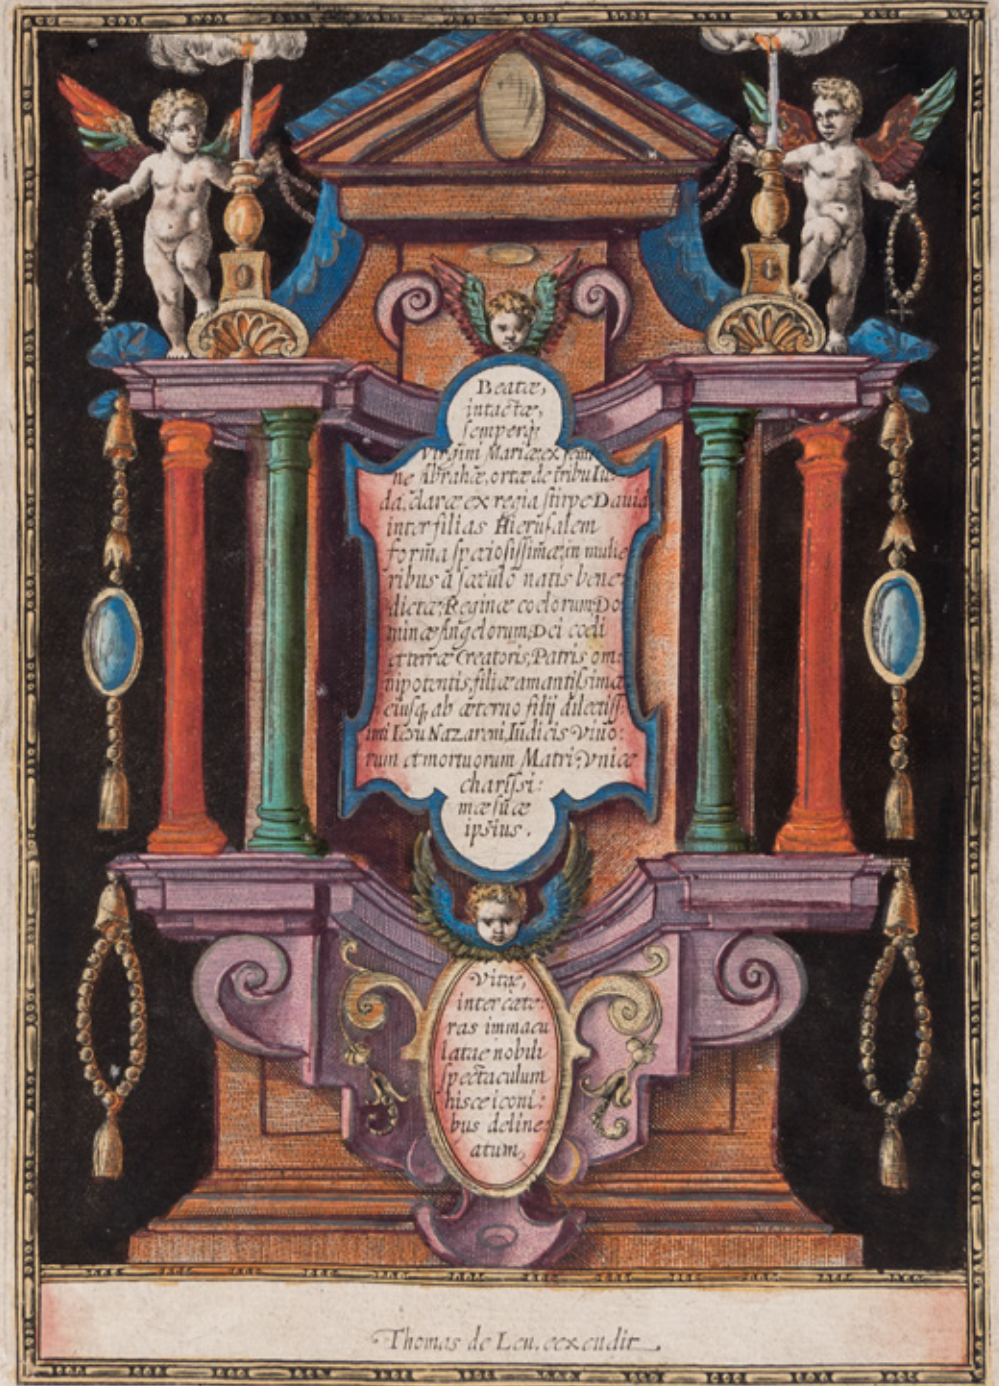 Beatæ,
intactæ,
semperq;
Virgini Mariæ ex semi
ne Abrahæ, ortæ de tribu Iu-
da, claræ ex regia stirpe Dauid
inter filias Hierusalem
forma speciosissimæ, in mulie
ribus à sæculo natis bene
dictæ, Reginæ coelorum, Do
minæ Angelorum, Dei coeli
et terræ Creatoris, Patris om:
nipotentis, filiæ amantissimæ
eiusq, ab æterno filij dilectiss:
imi Iesu Nazareni, Iudicis viuo:
rum et mortuorum Matri, Vnicæ
charissi:
mæ suæ
ipsius.
Vitæ,
inter cæte:
ras immacu
latae nobili
spectaculum
hisce iconi:
bus deline:
atum,
Thomas de Leu. excudit